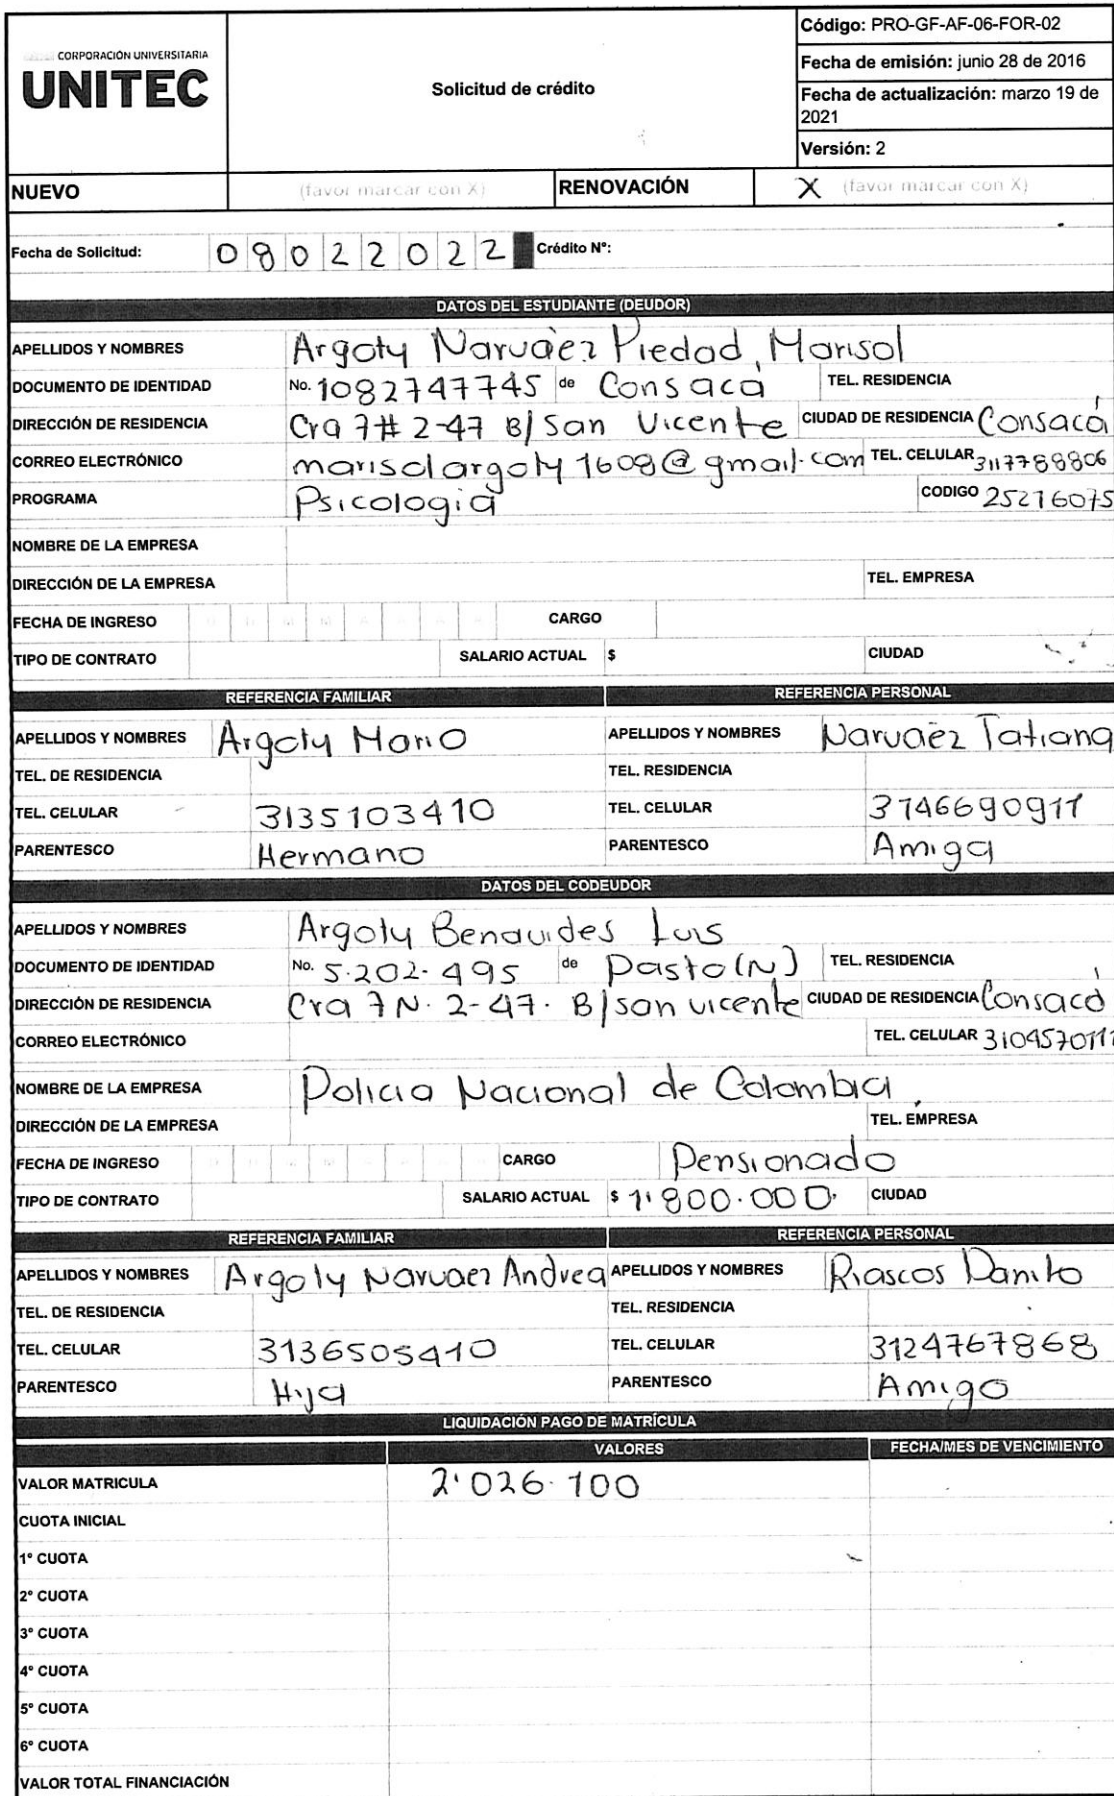 CORPORACIÓN UNIVERSITARIA
UNITEC
Solicitud de crédito
Código: PRO-GF-AF-06-FOR-02
Fecha de emisión: junio 28 de 2016
Fecha de actualización: marzo 19 de
2021
Versión: 2
NUEVO (favor marcar con X) RENOVACIÓN X (favor marcar con X)
Fecha de Solicitud: 08022022 Crédito N°:
DATOS DEL ESTUDIANTE (DEUDOR)
APELLIDOS Y NOMBRES Argoty Narváez Piedad Marisol
DOCUMENTO DE IDENTIDAD No. 1082747745 de Consacá TEL. RESIDENCIA
DIRECCIÓN DE RESIDENCIA Cra 7# 2-47 B/ San Vicente CIUDAD DE RESIDENCIA Consacá
CORREO ELECTRÓNICO marisolargoty1608@gmail.com TEL. CELULAR 3117788806
PROGRAMA Psicología CODIGO 25216075
NOMBRE DE LA EMPRESA
DIRECCIÓN DE LA EMPRESA TEL. EMPRESA
FECHA DE INGRESO CARGO
TIPO DE CONTRATO SALARIO ACTUAL $ CIUDAD
REFERENCIA FAMILIAR REFERENCIA PERSONAL
APELLIDOS Y NOMBRES Argoty Mario APELLIDOS Y NOMBRES Narváez Tatiana
TEL. DE RESIDENCIA TEL. RESIDENCIA
TEL. CELULAR 3135103410 TEL. CELULAR 3146690911
PARENTESCO Hermano PARENTESCO Amiga
DATOS DEL CODEUDOR
APELLIDOS Y NOMBRES Argoty Benavides Luis
DOCUMENTO DE IDENTIDAD No. 5.202.495 de Pasto (N) TEL. RESIDENCIA
DIRECCIÓN DE RESIDENCIA Cra 7 N. 2-47. B/ san vicente CIUDAD DE RESIDENCIA Consacá
CORREO ELECTRÓNICO TEL. CELULAR
NOMBRE DE LA EMPRESA Policia Nacional de Colombia
DIRECCIÓN DE LA EMPRESA TEL. EMPRESA
FECHA DE INGRESO CARGO Pensionado
TIPO DE CONTRATO SALARIO ACTUAL $ 1'800.000. CIUDAD
REFERENCIA FAMILIAR REFERENCIA PERSONAL
APELLIDOS Y NOMBRES Argoty Narvaez Andrea APELLIDOS Y NOMBRES Riascos Danilo
TEL. DE RESIDENCIA TEL. RESIDENCIA
TEL. CELULAR 3136505410 TEL. CELULAR 3124767868
PARENTESCO Hija PARENTESCO Amigo
LIQUIDACIÓN PAGO DE MATRÍCULA
VALORES FECHA/MES DE VENCIMIENTO
VALOR MATRICULA 2'026.100
CUOTA INICIAL
1° CUOTA
2° CUOTA
3° CUOTA
4° CUOTA
5° CUOTA
6° CUOTA
VALOR TOTAL FINANCIACIÓN